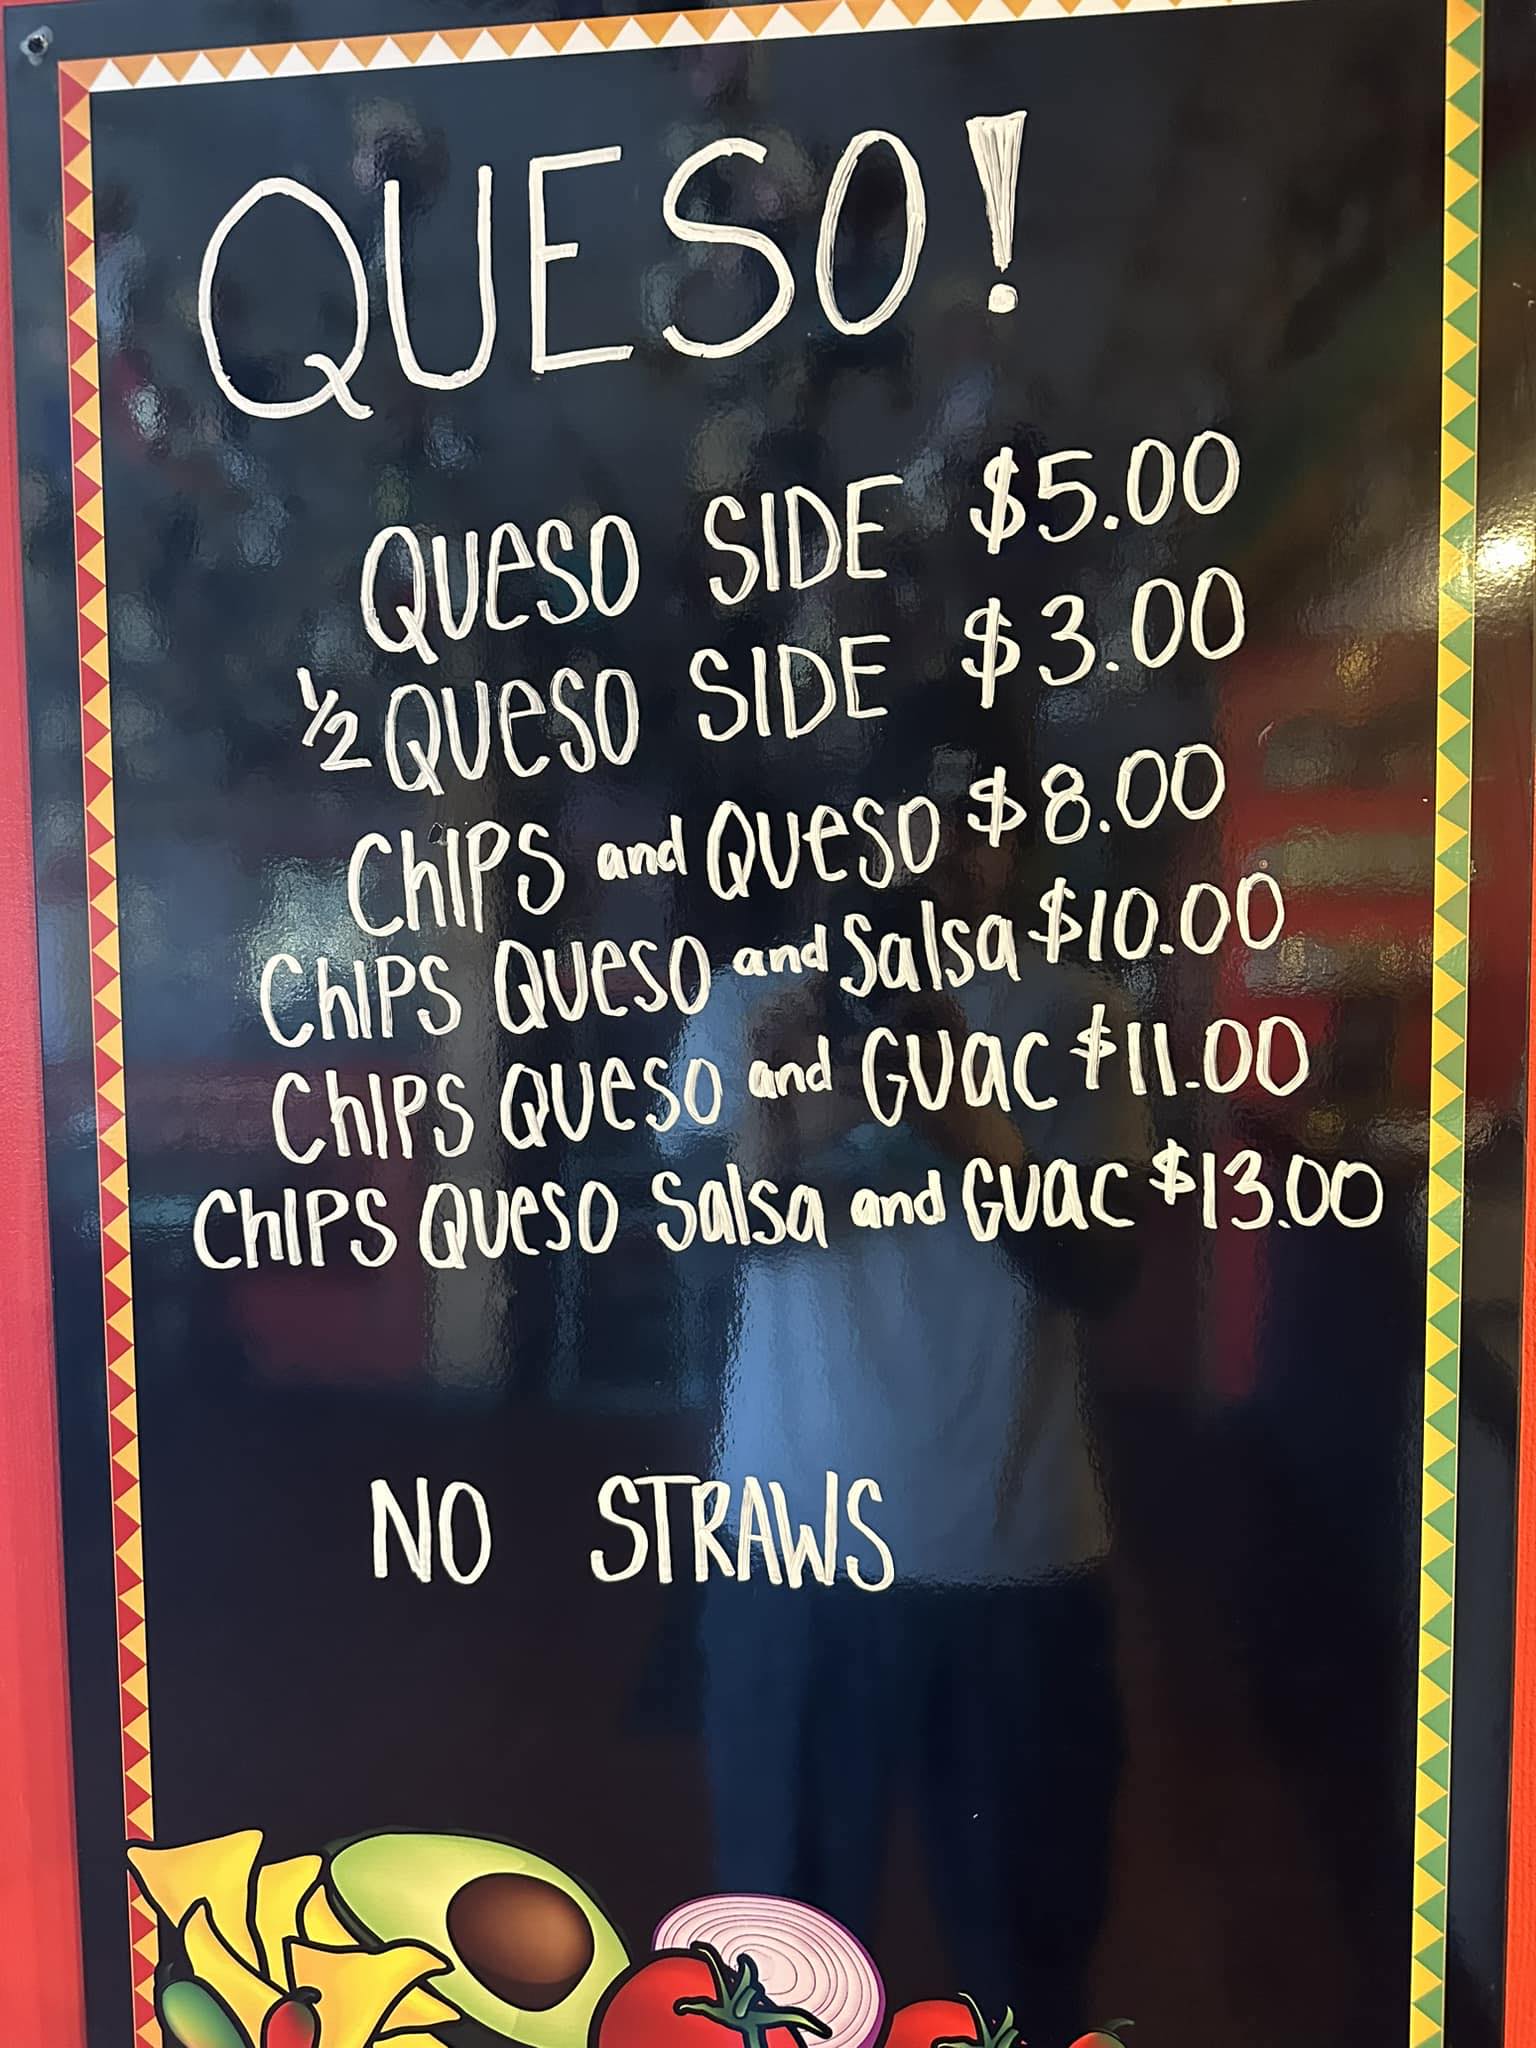 QUESO!
QUeSO SIDE $5.00
1/2 QUeSO SIDE $3.00
ChIPS and QUeSO $8.00
ChIPS QUeSO and Salsa $10.00
ChIPS QUeSO and GUac $11.00
ChIPS QUeSO Salsa and GUac $13.00
NO STRAWS